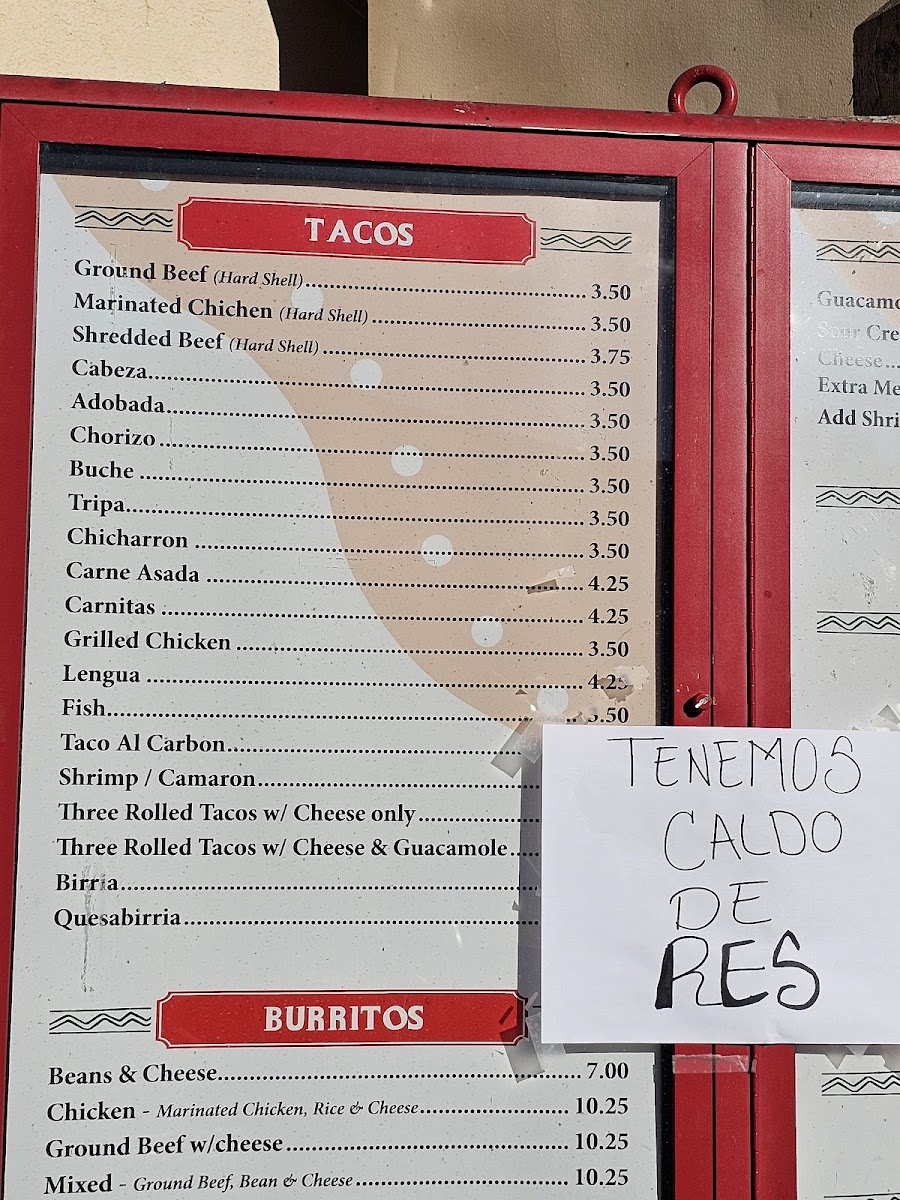 TACOS
Ground Beef (Hard Shell)........ 3.50
Marinated Chichen (Hard Shell)........ 3.50
Shredded Beef (Hard Shell)........ 3.75
Cabeza........ 3.50
Adobada........ 3.50
Chorizo........ 3.50
Buche........ 3.50
Tripa........ 3.50
Chicharron........ 3.50
Carne Asada........ 4.25
Carnitas........ 4.25
Grilled Chicken........ 3.50
Lengua........ 4.25
Fish........ 3.50
Taco Al Carbon........
Shrimp / Camaron........
Three Rolled Tacos w/ Cheese only........
Three Rolled Tacos w/ Cheese & Guacamole........
Birria........
Quesabirria........
BURRITOS
Beans & Cheese........ 7.00
Chicken - Marinated Chicken, Rice & Cheese........ 10.25
Ground Beef w/cheese........ 10.25
Mixed - Ground Beef, Bean & Cheese........ 10.25
TENEMOS
CALDO
DE
RES
Guacamo
Sour Cre
Cheese...
Extra Me
Add Shri